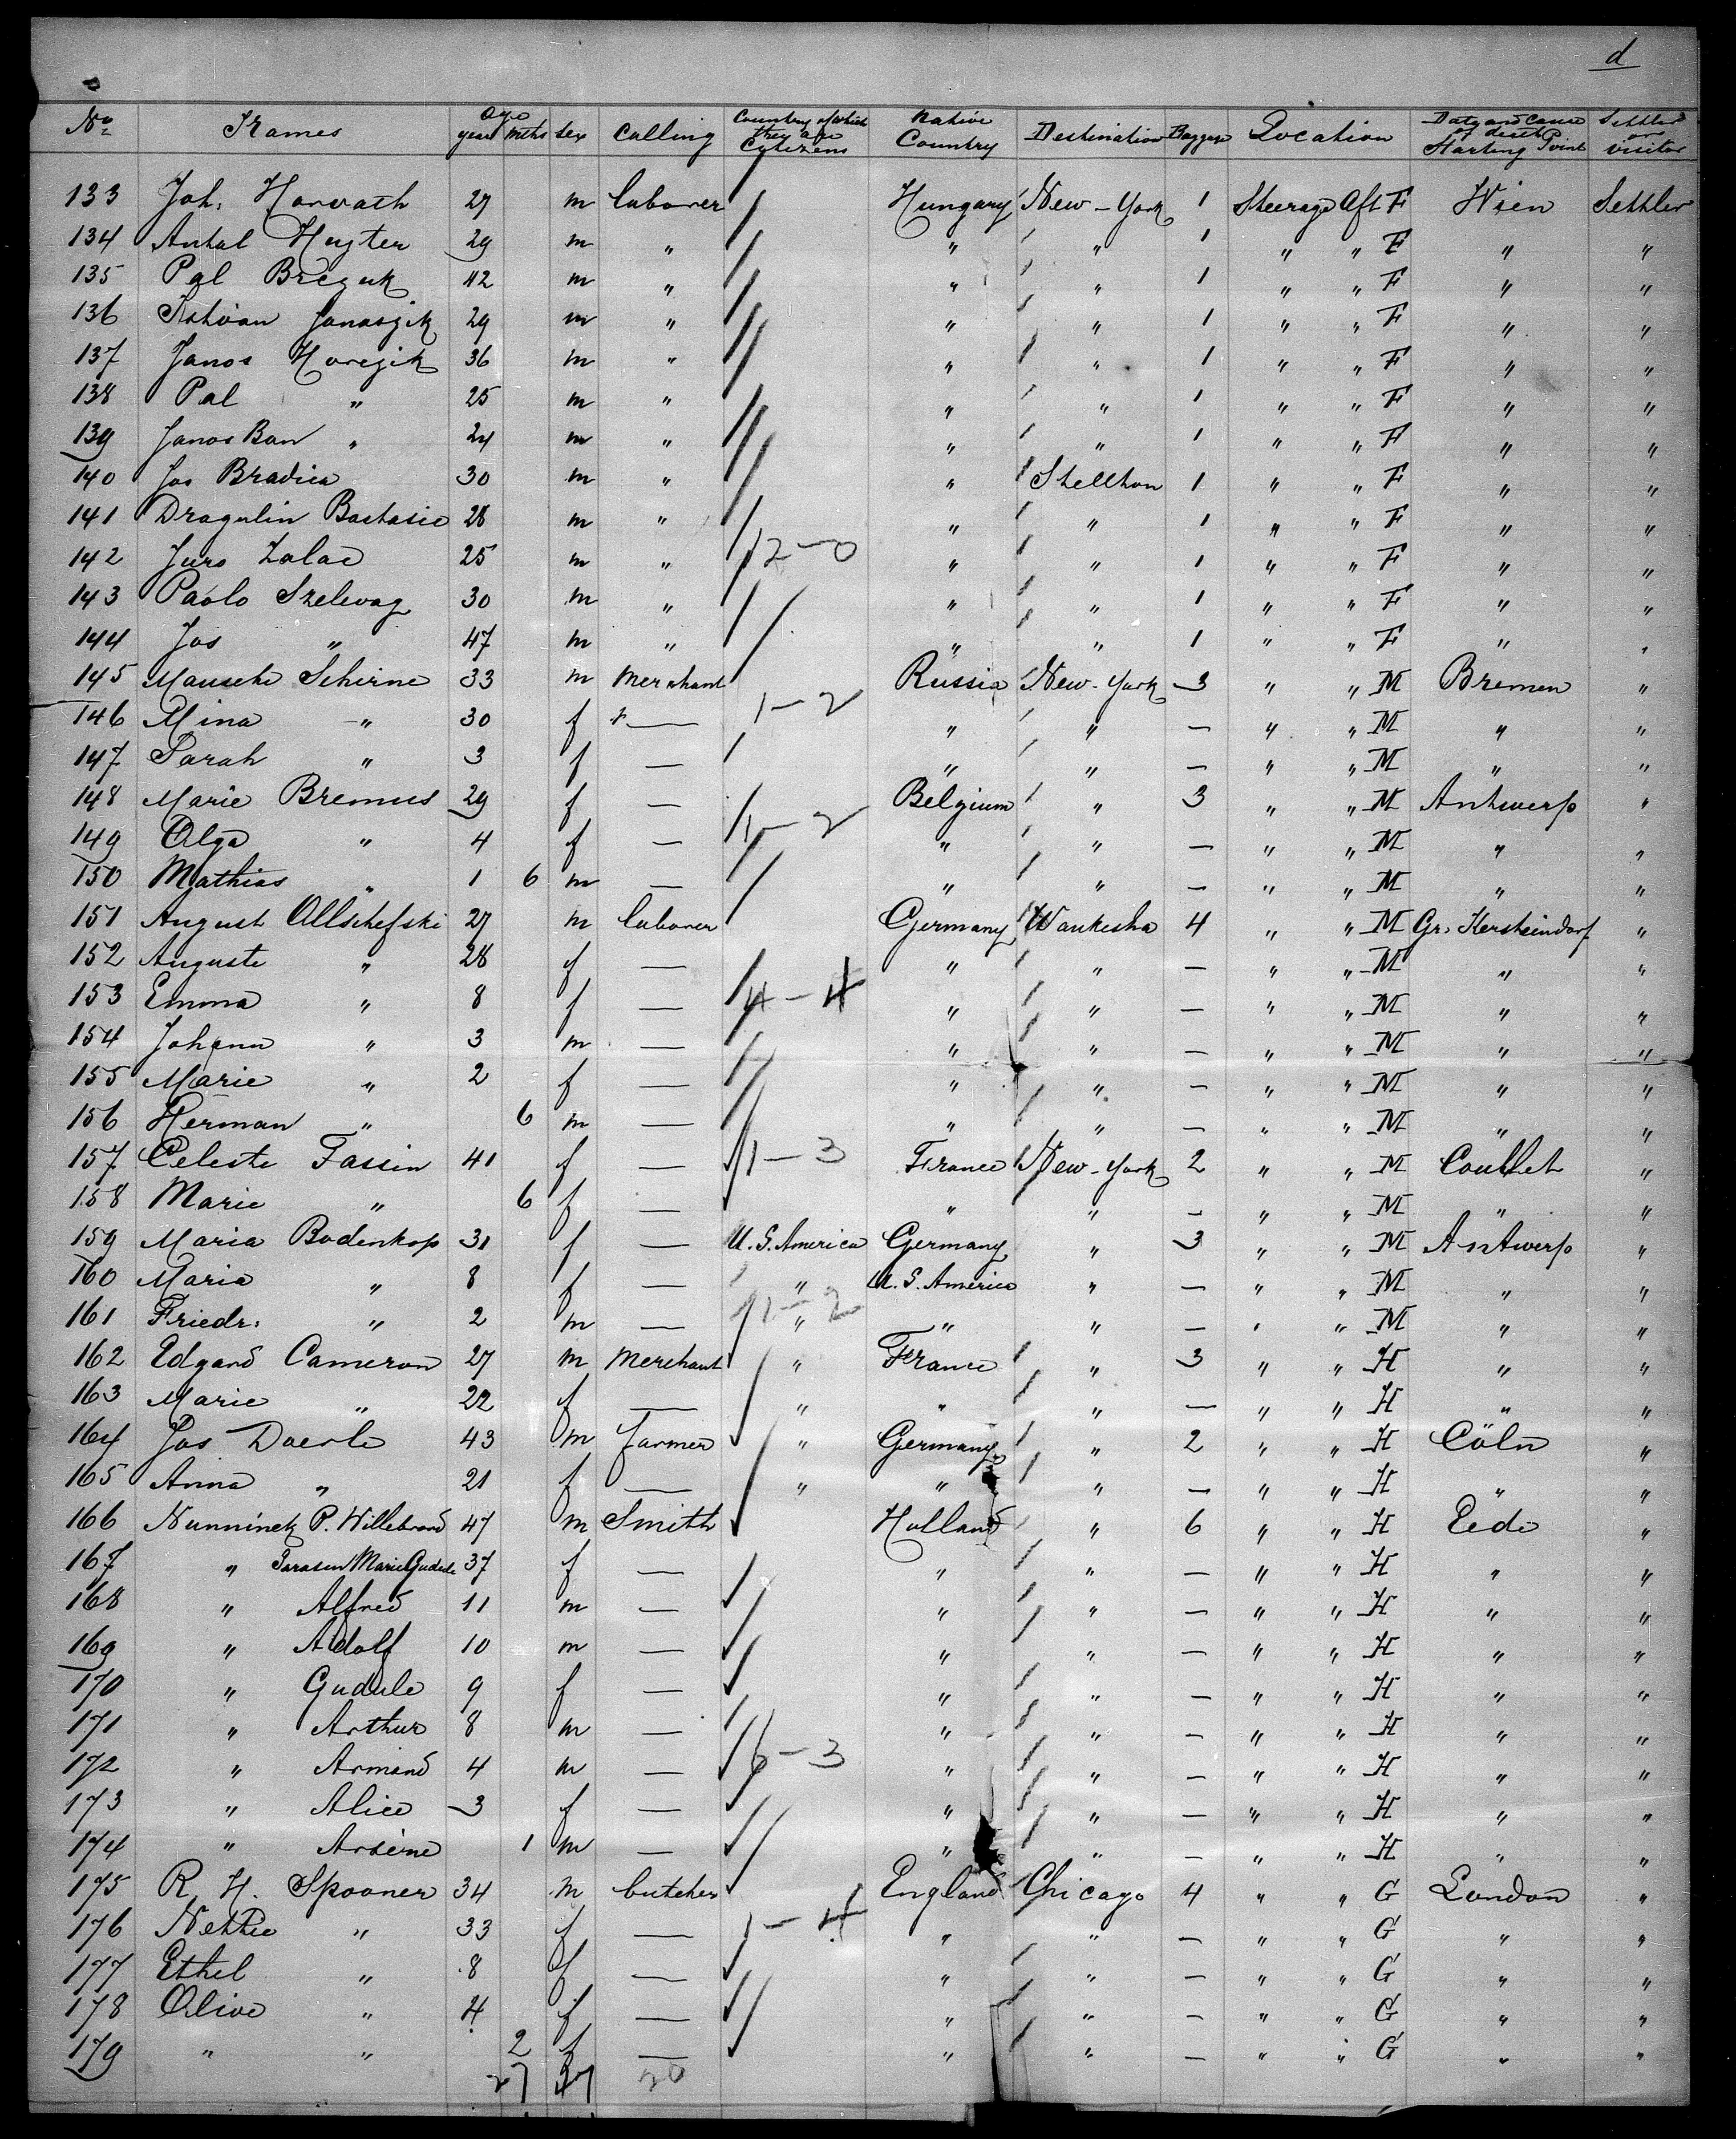 d
No Names Age years mths sex Calling Country of which they are Cytezens Native Country Destination Baggage Location Date and Cause of death Starting Point Settler or visitor
133 Joh. Horvath 27 m laborer Hungary New-York 1 Steerage Aft F Wien Settler
134 Antal 29 m " " " 1 " " F " "
135 Pal 42 m " " " 1 " " F " "
136 29 m " " " 1 " " F " "
137 Janos 36 m " " " 1 " " F " "
138 Pal " 25 m " " " 1 " " F " "
139 Janos Ban " 24 m " " " 1 " " F " "
140 Jos Bradica 30 m " " Stellton 1 " " F " "
141 Dragulin Bastasic 28 m " " " 1 " " F " "
142 Juro Zalac 25 m " 12-0 " " 1 " " F " "
143 Paolo 30 m " " " 1 " " F " "
144 Jos " 47 m " " " 1 " " F " "
145 Mausche Schirne 33 m Merchant Russia New-York 3 " " M Bremen "
146 Mina " 30 f — 1-2 " " — " " M " "
147 Sarah " 3 f — " " — " " M " "
148 Marie Bremus 29 f — Belgium " 3 " " M Antwerp "
149 Olga " 4 f — 1-2 " " — " " M " "
150 Mathias " 1 6 m — " " — " " M " "
151 August Ollschefski 27 m laborer Germany Waukesha 4 " " M Gr. Kersteindorf "
152 Auguste " 28 f — " " — " " M " "
153 Emma " 8 f — 4-4 " " — " " M " "
154 Johann " 3 m — " " — " " M " "
155 Marie " 2 f — " " — " " M " "
156 Herman " 6 m — " " — " " M " "
157 Celeste Fassin 41 f — 1-3 France New-York 2 " " M Coullet "
158 Marie " 6 f — " " — " " M " "
159 Maria Bodenkop 31 f — U.S. America Germany " 3 " " M Antwerp "
160 Maria " 8 f — " U.S. America " — " " M " "
161 Friedr. " 2 m — 1-2 " " " — " " M " "
162 Edgard Cameron 27 m Merchant " France " 3 " " H " "
163 Marie " 22 f — " " " — " " H " "
164 Jos Doerle 43 m farmer " Germany " 2 " " H Cöln "
165 Anna " 21 f — " " " — " " H " "
166 Nunninck P. Willebrord 47 m Smith Holland " 6 " " H Eede "
167 " Marie Gudule 37 f — " " — " " H " "
168 " Alfred 11 m — " " — " " H " "
169 " Adolf 10 m — " " — " " H " "
170 " Gudule 9 f — " " — " " H " "
171 " Arthur 8 m — " " — " " H " "
172 " Armand 4 m — 6-3 " " — " " H " "
173 " Alice 3 f — " " — " " H " "
174 " Arsène 1 m — " " — " " H " "
175 R. H. Spooner 34 m butcher England Chicago 4 " " G London "
176 Nettie " 33 f — 1-4 " " — " " G " "
177 Ethel " 8 f — " " — " " G " "
178 Olive " 4 f — " " — " " G " "
179 " " 2 f — " " — " " G " "
27 20